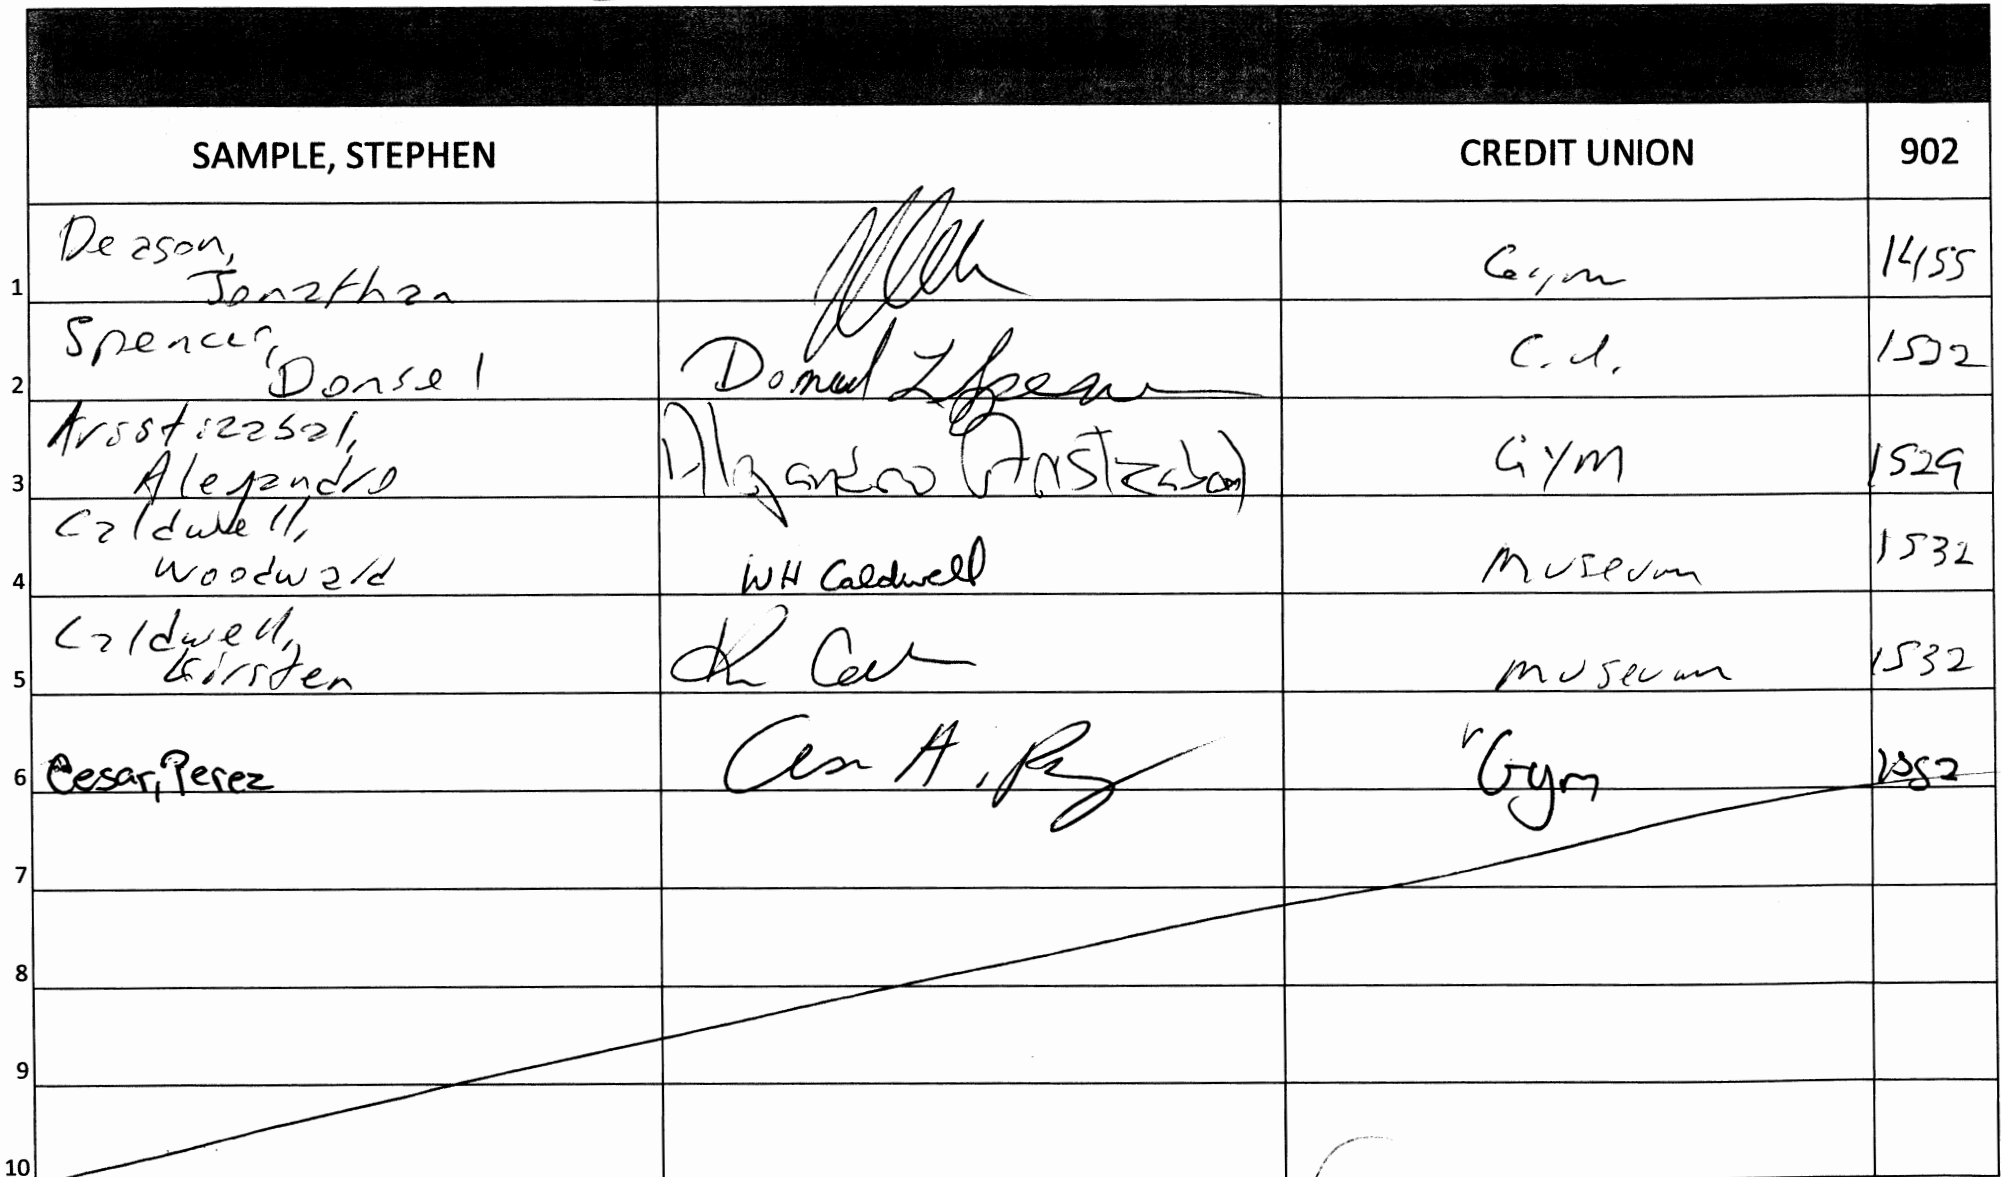 SAMPLE, STEPHEN CREDIT UNION 902
Deason,
Jonathan Gym 1455
1
Spencer,
Donael C.U. 1532
2 Donael
Aristizabal,
Alejandro Alejandro Aristizabal GYM 1529
3
Caldwell,
Woodward WH Caldwell Museum 1532
4
Caldwell,
Kirsten Museum 1532
5
6 Cesar, Perez Cesar A. Gym
7
8
9
10